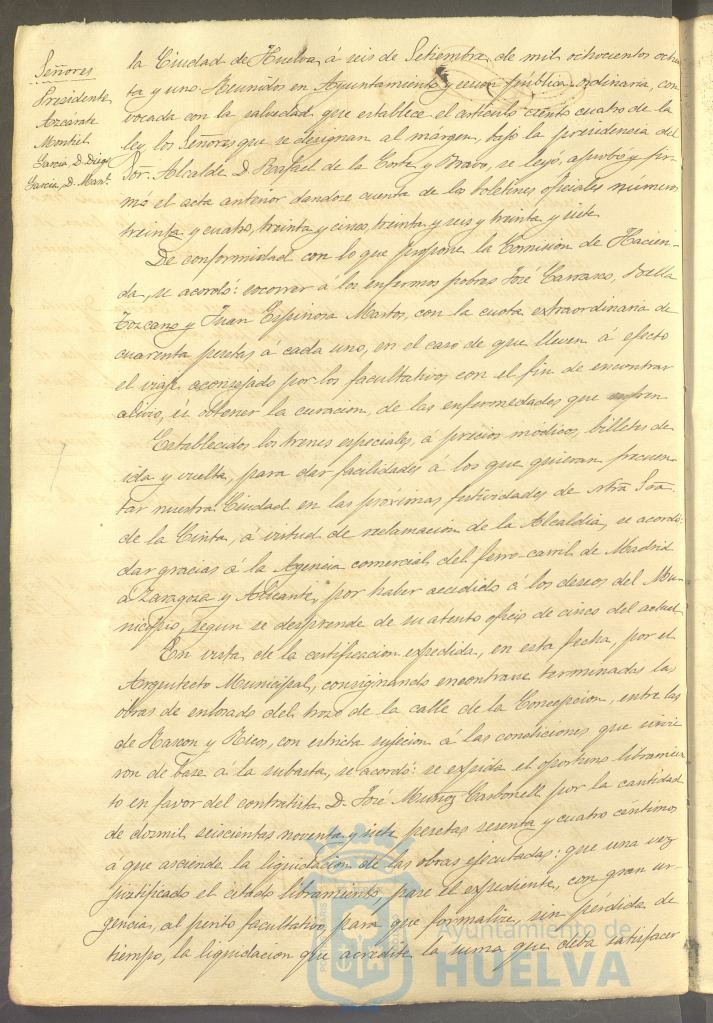 Señores
Presidente
Azcárate
Montiel
García D. Diego
García, D. Manl.
la Ciudad de Huelva, á seis de Setiembre de mil ochocientos ochen
ta y uno. Reunidos en Ayuntamiento y sesion pública ordinaria, con
vocada con la salvedad que establece el artículo ciento cuatro de la
ley, los Señores que se designan al márgen, bajo la presidencia del
Sor. Alcalde D. Rafael de la Corte y Bravo, se leyó, aprobó y fir-
mó el acta anterior dandose cuenta de los boletines oficiales números
treinta y cuatro, treinta y cinco, treinta y seis y treinta y siete.
De conformidad con lo que propone la Comision de Hacien-
da, se acordó: socorrer á los enfermos pobres José Carrasco, Bella
Tozcano y Juan Espinosa Martos, con la cuota extraordinaria de
cuarenta pesetas á cada uno, en el caso de que lleven á efecto
el viaje aconsejado por los facultativos con el fin de encontrar
alivio, ú obtener la curacion, de las enfermedades que sufren
Establecidos los trenes especiales, á precios módicos, billetes de
ida y vuelta, para dar facilidades á los que quieran frecuen-
tar nuestra Ciudad en las proximas festividades de Ntra Sra.
de la Cinta, á virtud de reclamacion de la Alcaldia, se acordó:
dar gracias á la Agencia comercial del ferro-carril de Madrid
á Zaragoza y Alicante, por haber accedido á los deseos del Mu-
nicipio, segun se desprende de su atento oficio de cinco del actual
En vista de la certificacion expedida, en esta fecha, por el
Arquitecto Municipal, consignando encontrarse terminadas las
obras de enlosado del trozo de la calle de la Concepcion, entre las
de Rascon y Ricos, con estricta sujecion á las condiciones que sirvie
ron de base á la subasta, se acordó: se expida el oportuno libramien
to en favor del contratista D. José Muñoz Carbonell por la cantidad
de dosmil seiscientas noventa y siete pesetas sesenta y cuatro céntimos
á que asciende la liquidacion de las obras ejecutadas: que una vez
justificado el citado libramiento, pase el expediente, con gran ur-
gencia, al perito facultativo para que formalice, sin pérdida de
tiempo, la liquidacion que acredite la suma que deba satisfacer
Ayuntamiento de
HUELVA